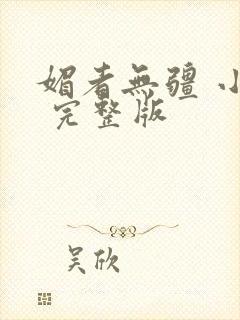 媚者無疆 小
完整版
吴欣